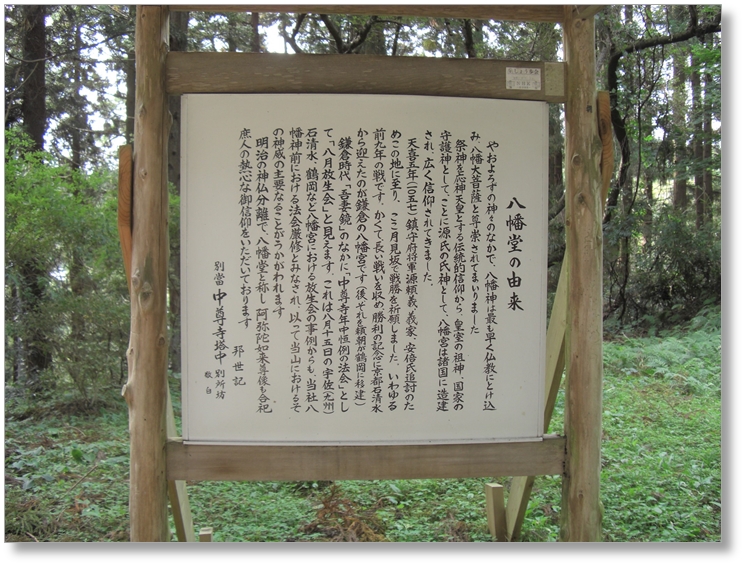 八幡堂の由来
やおよろずの神々のなかで、八幡神は最も早く仏教にとけ込
み、八幡大菩薩と尊崇されてまいりました
祭神を応神天皇とする伝統的信仰から、皇室の祖神、国家の
守護神として、ことに源氏の氏神として、八幡宮は諸国に造建
され、広く信仰されてきました。
天喜五年(一〇五七)鎮守府将軍源頼義、義家、安倍氏追討のた
めこの地に至り、ここ月見坂で戦勝を祈願しました。いわゆる
前九年の戦です。かくて長い戦いを収め勝利の記念に京都石清水
から迎えたのが鎌倉の八幡宮です(後それを頼朝が鶴岡に移建)
鎌倉時代、「吾妻鏡」のなかに、中尊寺年中恒例の法会」とし
て「八月放生会」と見えます。これは八月十五日の宇佐(九州)
石清水、鶴岡など八幡宮における放生会の事例からも、当社八
幡神前における法会厳修とみなされ、以って当山におけるそ
の神威の主要なることがうかがわれます
明治の神仏分離で、八幡堂と称し阿弥陀如来尊像も合祀
庶人の熱心な御信仰をいただいております
邦世記
別當 中尊寺塔中 別所坊
敬白